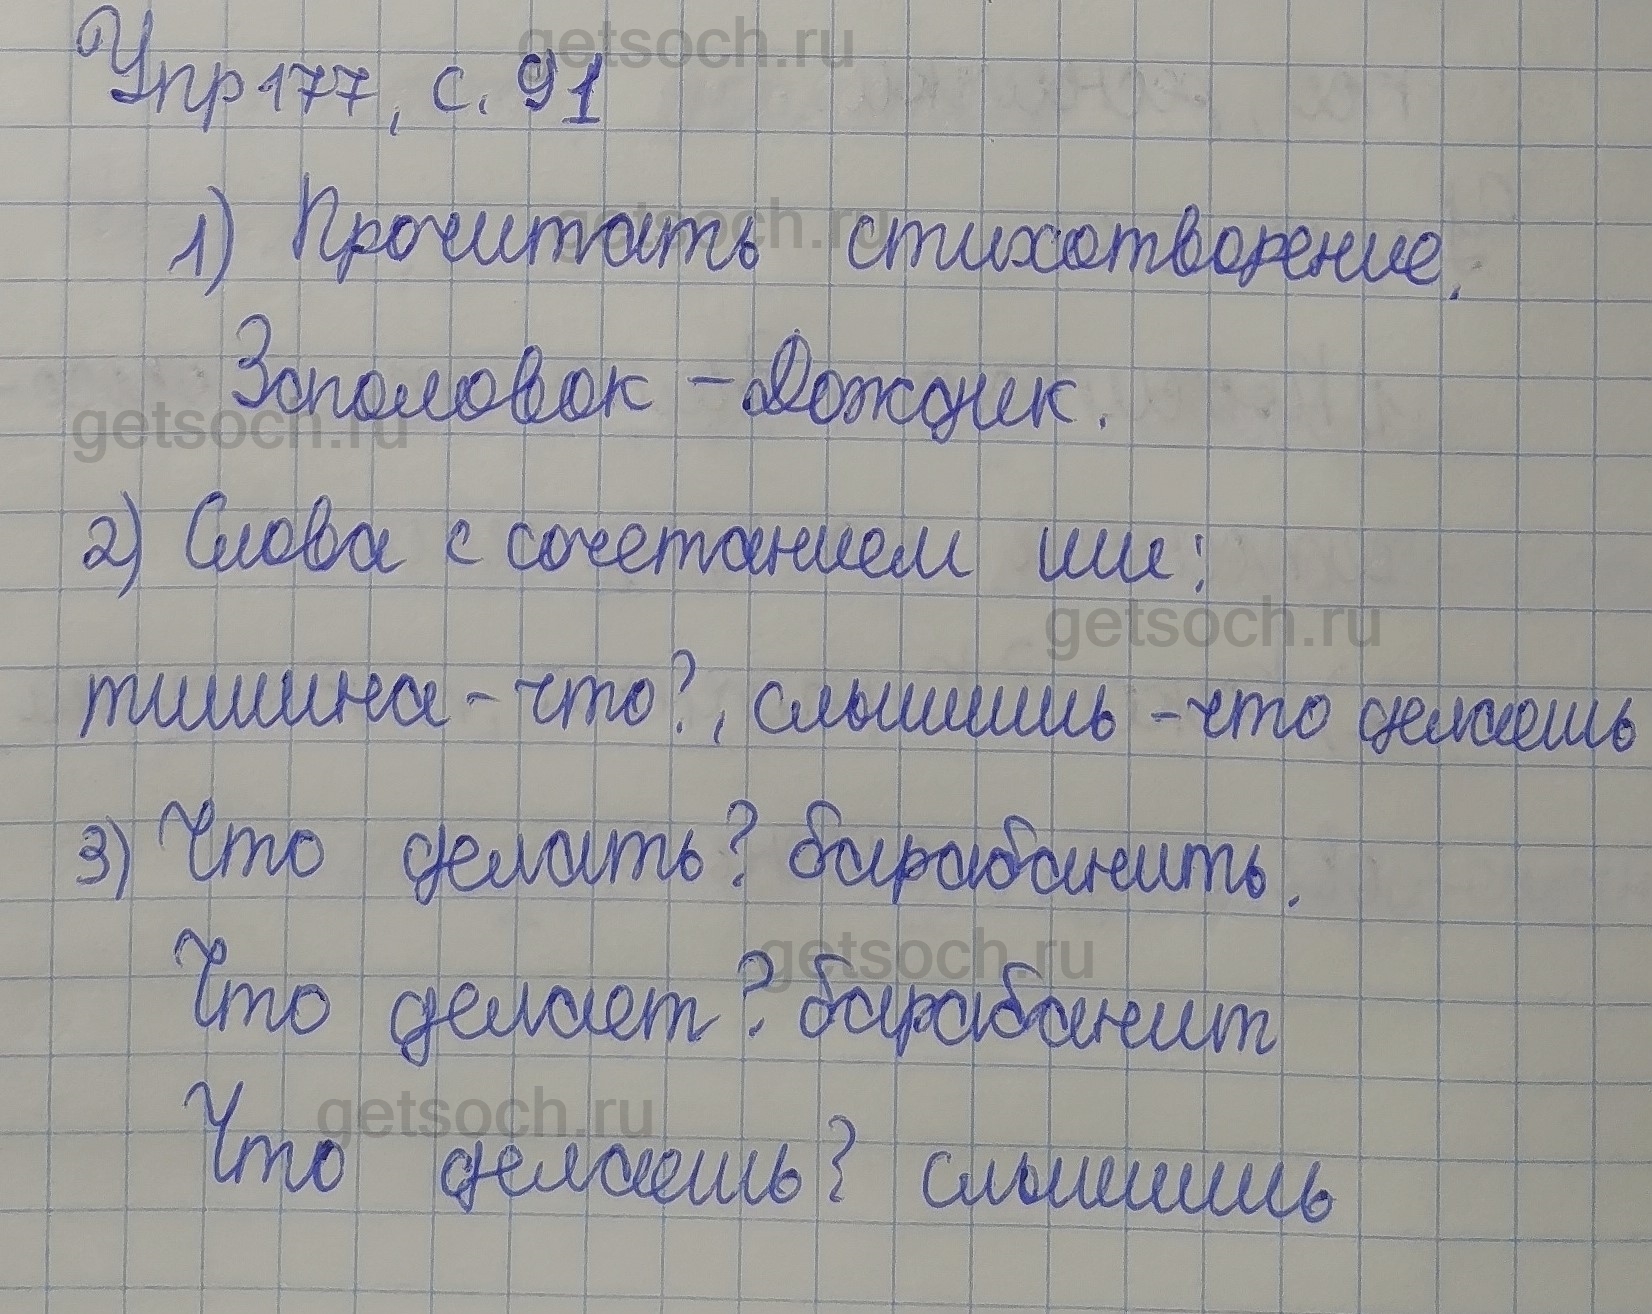 Упр 177, с. 91
1) Прочитать стихотворение.
Заголовок - Дождик.
2) Слова с сочетанием ши:
тишина - что?, слышишь - что делаешь
3) Что делать? барабанить.
Что делает? барабанит
Что делаешь? слышишь
getsoch.ru
getsoch.ru
getsoch.ru
getsoch.ru
getsoch.ru
getsoch.ru